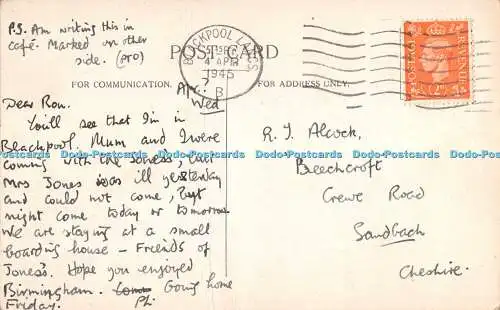 P.S. Am writing this in
café. Marked on other
side. (pro)
POST CARD
BLACKPOOL LANCS
4 APR
1945
B
POSTAGE
REVENUE
FOR COMMUNICATION.
FOR ADDRESS ONLY.
Wed
Dear Ron.
You'll see that I'm in
Blackpool. Mum and I were
coming with the Jones's, but
Mrs Jones was ill yesterday
and could not come, but
might come today or tomorrow.
We are staying at a small
boarding house - Friends of
Jones's. Hope you enjoyed
Birmingham. Going home
Friday.
R. J. Alcock,
Beechcroft
Crewe Road
Sandbach
Cheshire.
Dado-Postcards Dado-Postcards Dado-Postcards Dado-Postcards Dado-Postcards